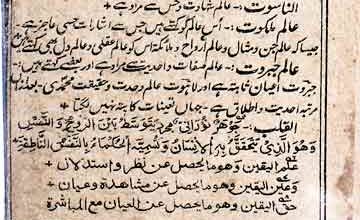 الناسوت :- عالم شہادت وحس سے مراد ہے +
عالم ملکوت :- اُس عالم کو کہتے ہیں جس سے اشارات حسی عاجز ہے۔
جیسا کہ عالم جن و مثال و عالم ارواح و ملائکہ اس کو عالم عقلی و عالم دل بھی کہتے ہیں
عالم جبروت :- عالم صفات واحدیت سے مراد ہے اور بعضے کہتے ہیں
جبروت اعیان ثابتہ ہے اور لاہوت عالم وحدت و حقیقت محمدی ہے
مرتبہ احدیت واطلاق ہے جہاں تعینات کا پتہ نہیں لگتا +
القلب :- جوهر نوراني مجرد يتوسط بين الروح والنفس
وهو الذي يتحقق به الإنسان ويسميه الحكماء بالنفس الناطقة +
علم اليقين وهو ما يحصل عن نظر واستدلال +
وعين اليقين وهو ما يحصل عن مشاهدة وعيان +
حق اليقين وهو ما يحصل عن العيان مع المباشرة